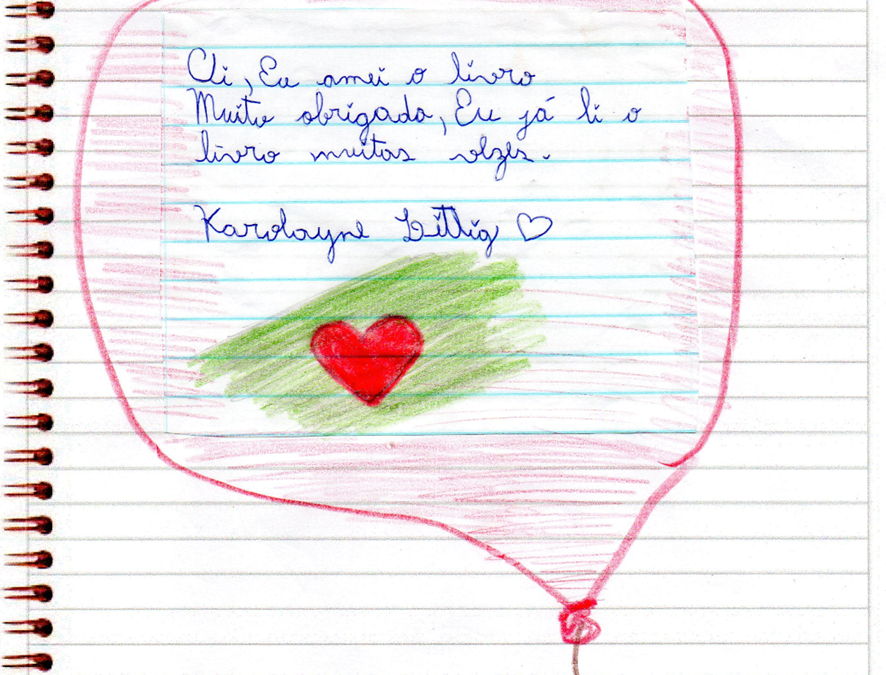 Oi, Eu amei o livro
Muito obrigada, Eu já li o
livro muitas vezes.
Karolayne Littig ♡